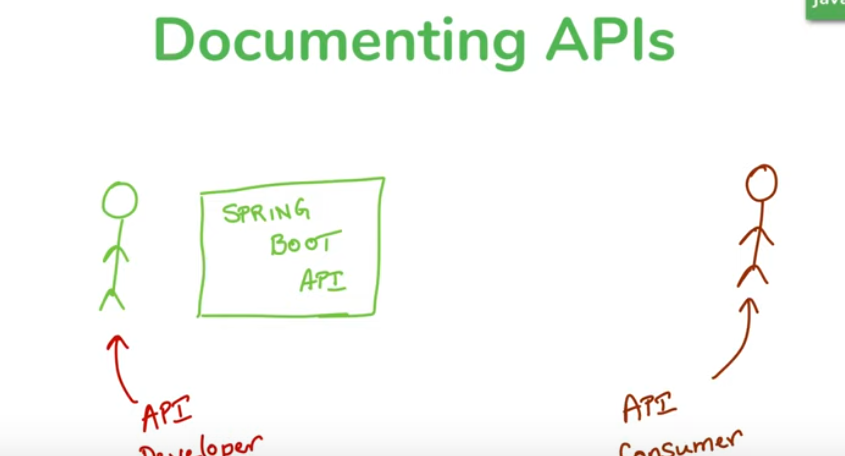 Java
Documenting APIs
SPRING
BOOT
API
API
Developer
API
Consumer